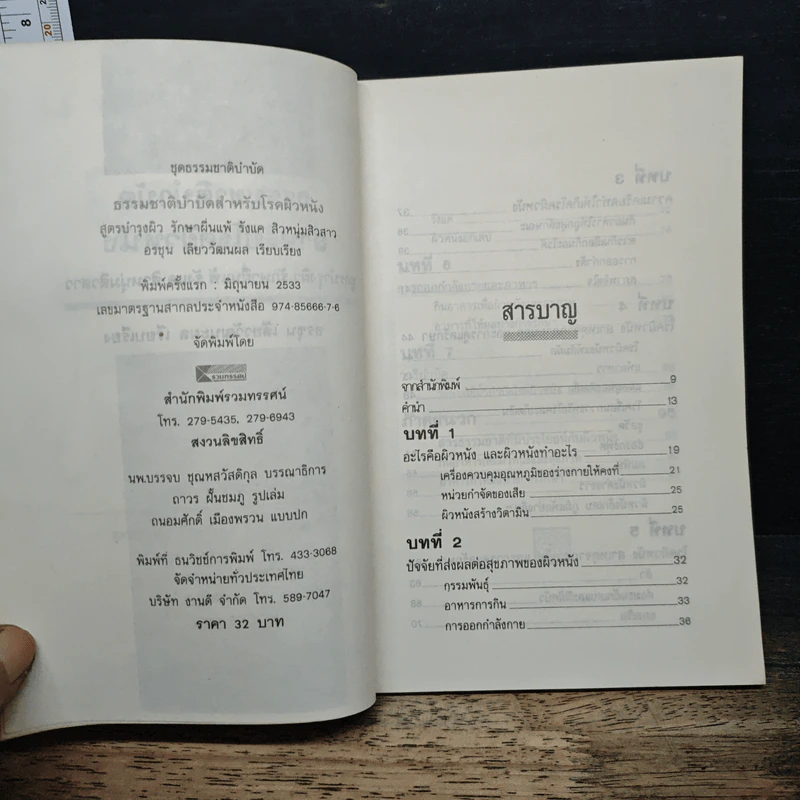 8
20
ชุดธรรมชาติบำบัด
ธรรมชาติบำบัดสำหรับโรคผิวหนัง
สูตรบำรุงผิว รักษาผื่นแพ้ รังแค สิวหนุ่มสิวสาว
อรชุน เลียววัฒนผล เรียบเรียง
พิมพ์ครั้งแรก : มิถุนายน 2533
เลขมาตรฐานสากลประจำหนังสือ 974-85666-7-6
จัดพิมพ์โดย
รวมทรรศน์
สำนักพิมพ์รวมทรรศน์
โทร. 279-5435, 279-6943
สงวนลิขสิทธิ์
นพ.บรรจบ ชุณหสวัสดิกุล บรรณาธิการ
ถาวร ฝั้นชมภู รูปเล่ม
ถนอมศักดิ์ เมืองพรวน แบบปก
พิมพ์ที่ ธนวิชช์การพิมพ์ โทร. 433-3068
จัดจำหน่ายทั่วประเทศไทย
บริษัท งานดี จำกัด โทร. 589-7047
ราคา 32 บาท
สารบาญ
จากสำนักพิมพ์ 9
คำนำ 13
บทที่ 1
อะไรคือผิวหนัง และผิวหนังทำอะไร 19
เครื่องควบคุมอุณหภูมิของร่างกายให้คงที่ 21
หน่วยกำจัดของเสีย 25
ผิวหนังสร้างวิตามิน 25
บทที่ 2
ปัจจัยที่ส่งผลต่อสุขภาพของผิวหนัง 32
กรรมพันธุ์ 32
อาหารการกิน 33
การออกกำลังกาย 36